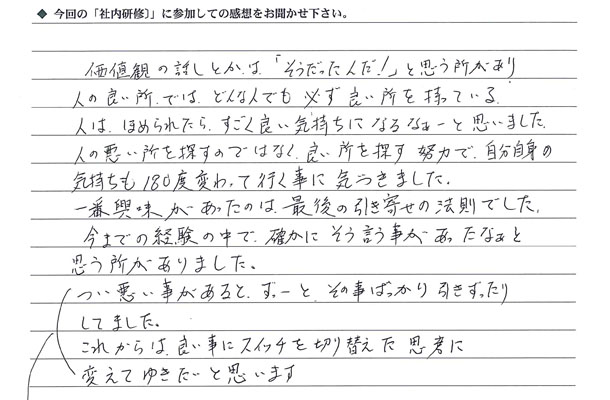 ◆ 今回の「社内研修」に参加しての感想をお聞かせ下さい。
価値観の話しとかは「そうだった人だ!」と思う所があり
人の良い所では、どんな人でも必ず良い所を持っている。
人は、ほめられたら、すごく良い気持ちになるなぁーと思いました。
人の悪い所を探すのではなく、良い所を探す努力で、自分自身の
気持ちも180度変わって行く事に気づきました。
一番興味があったのは、最後の引き寄せの法則でした。
今までの経験の中で、確かにそう言う事があったなぁと
思う所がありました。
つい悪い事があると、ずーと、その事ばっかり引きずったり
してました。
これからは、良い事にスイッチを切り替えた思考に
変えてゆきたいと思います